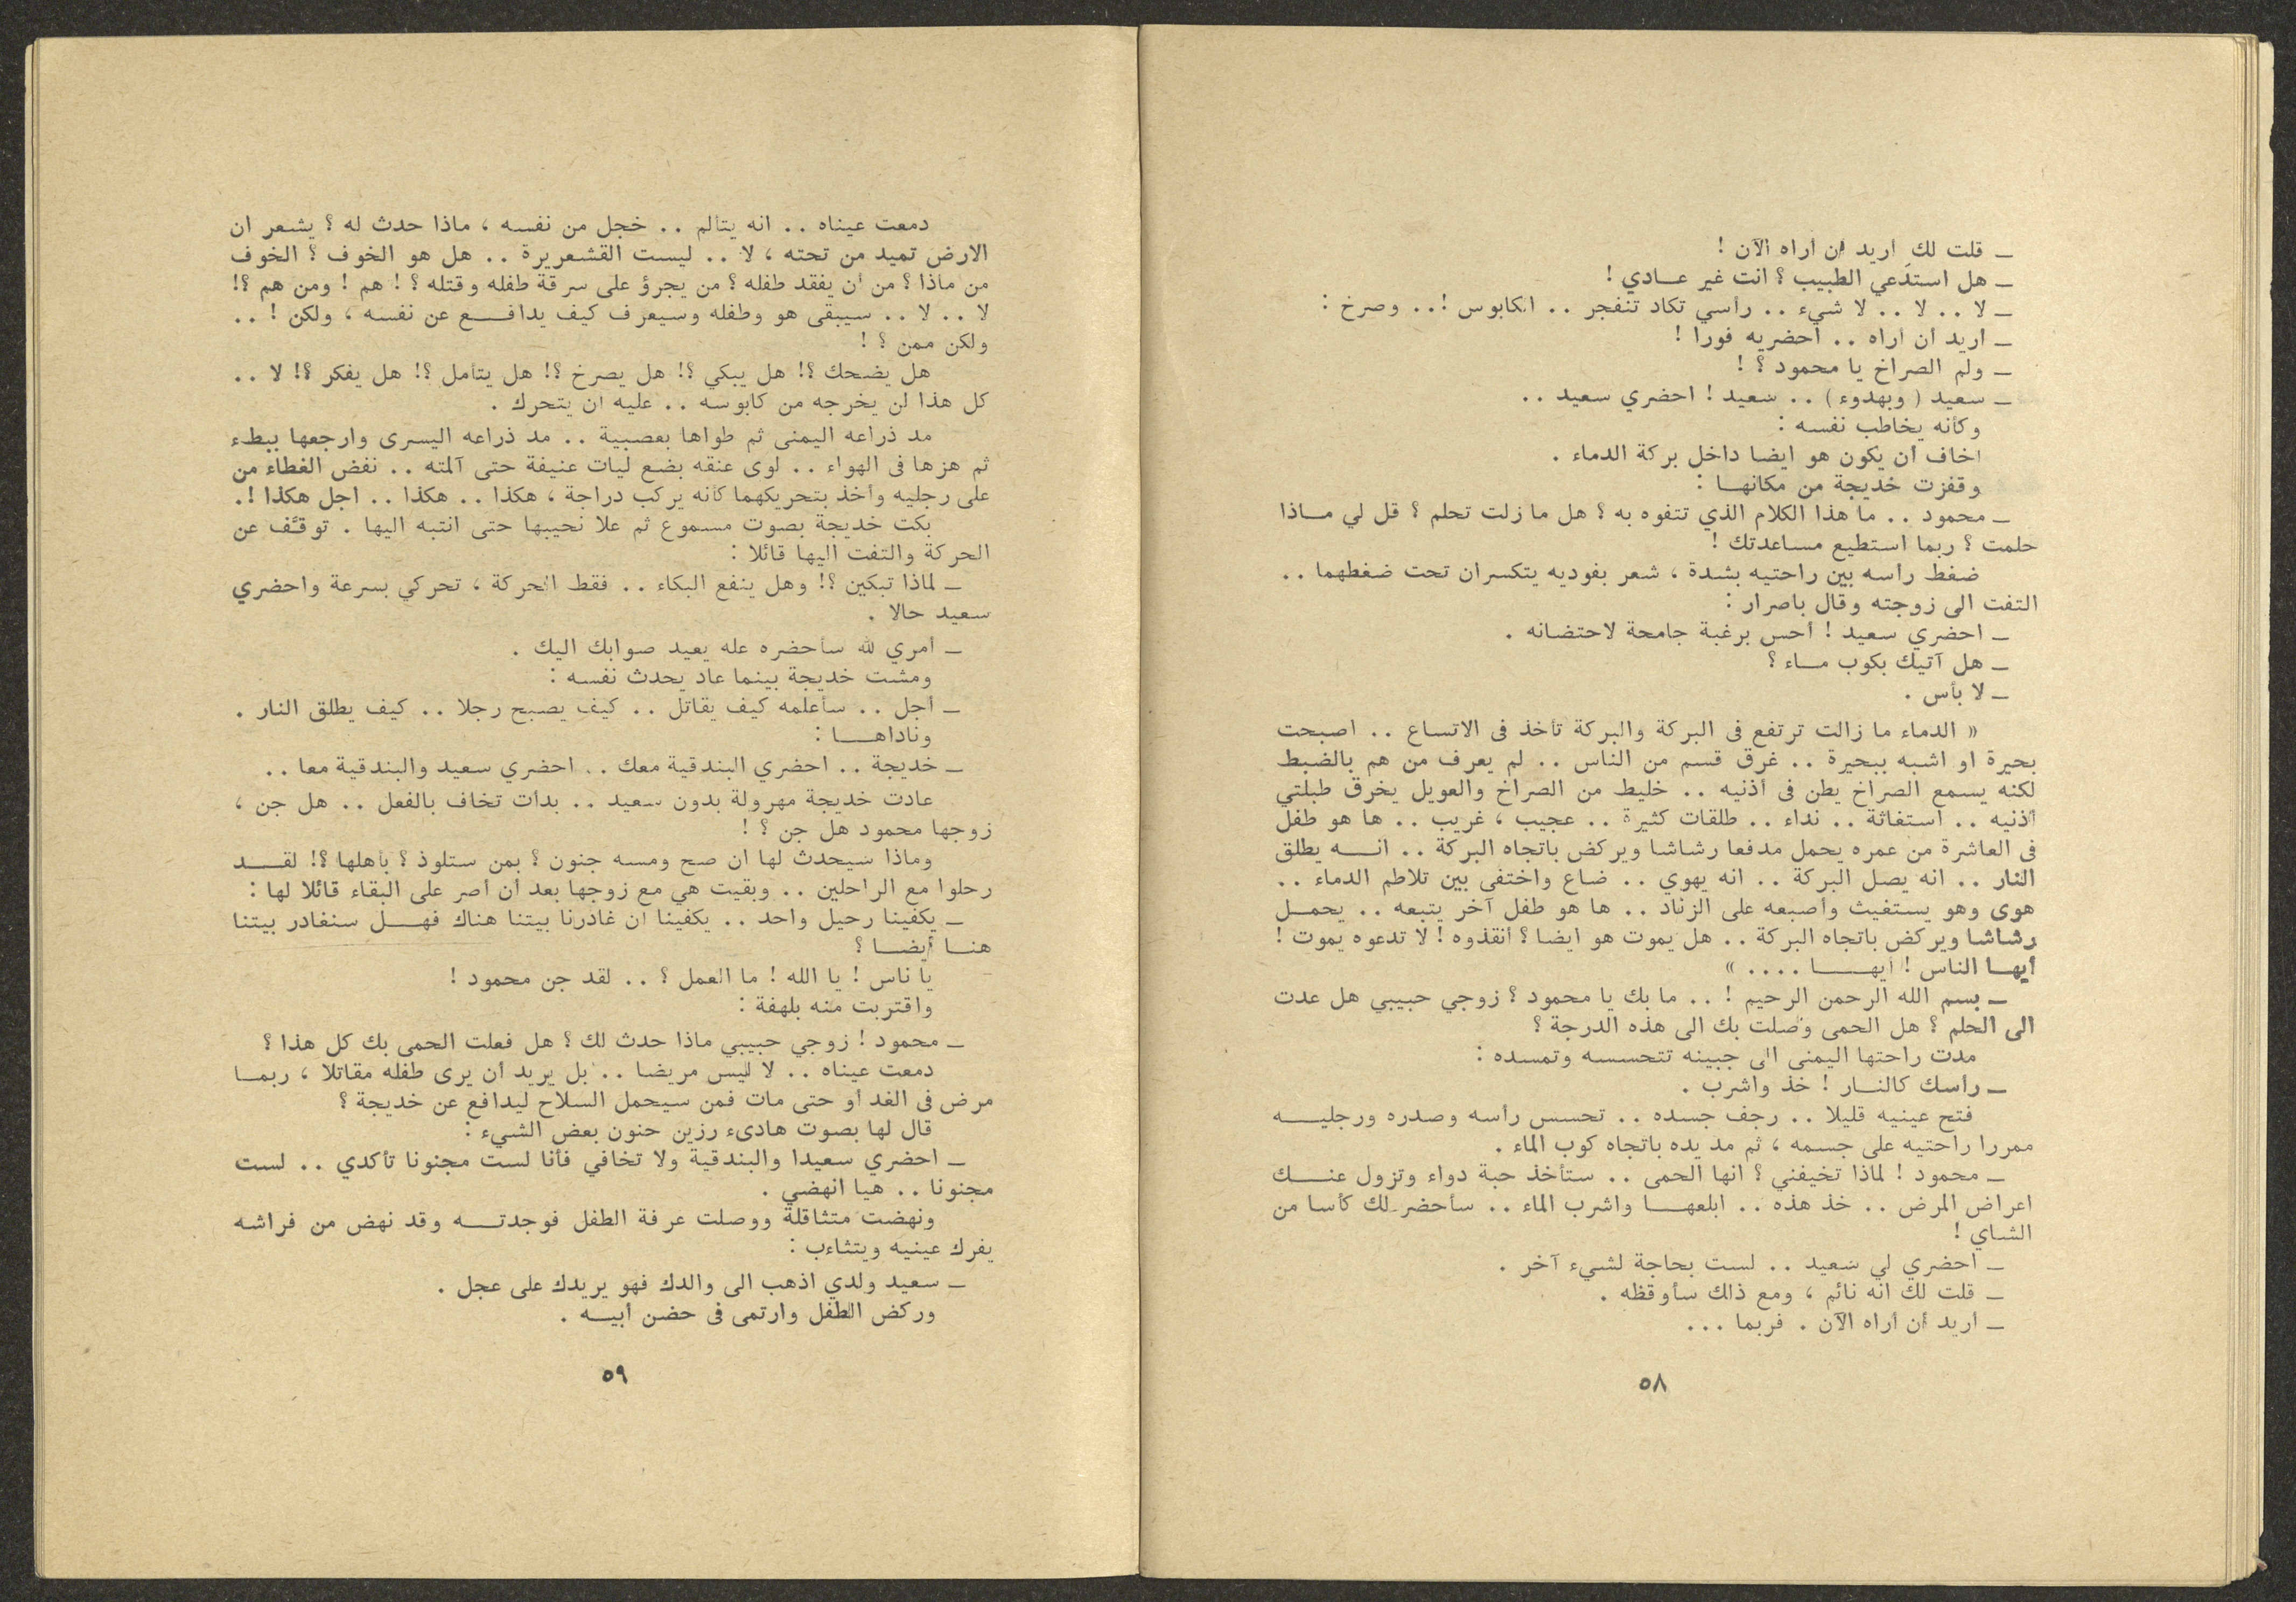 ـ قلت لك اريد ان اراه الآن !
ـ هل استدعي الطبيب ؟ انت غير عـادي !
ـ لا .. لا .. لا شيء .. رأسي تكاد تنفجر .. الكابوس !.. وصرخ :
ـ اريد ان اراه .. احضريه فورا !
ـ ولم الصراخ يا محمود ؟ !
ـ سعيد ( وبهدوء ) .. سعيد ! احضري سعيد ..
وكأنه يخاطب نفسه :
اخاف أن يكون هو ايضا داخل بركة الدماء .
وقفزت خديجة من مكانهـا :
ـ محمود .. ما هذا الكلام الذي تتفوه به ؟ هل ما زلت تحلم ؟ قل لي مـاذا
حلمت ؟ ربما استطيع مساعدتك !
ضغط راسه بين راحتيه بشدة ، شعر بفوديه يتكسران تحت ضغطهما ..
التفت الى زوجته وقال باصرار :
ـ احضري سعيد ! أحس برغبة جامحة لاحتضانه .
ـ هل آتيك بكوب مـاء ؟
ـ لا بأس .
« الدماء ما زالت ترتفع فى البركة والبركة تأخذ فى الاتساع .. اصبحت
بحيرة او اشبه ببحيرة .. غرق قسم من الناس .. لم يعرف من هم بالضبط
لكنه يسمع الصراخ يطن فى أذنيه .. خليط من الصراخ والعويل يخرق طبلتي
أذنيه .. استغاثة .. نداء .. طلقات كثيرة .. عجيب ، غريب .. ها هو طفل
فى العاشرة من عمره يحمل مدفعا رشاشا ويركض باتجاه البركة .. انـه يطلق
النار .. انه يصل البركة .. انه يهوي .. ضاع واختفى بين تلاطم الدماء ..
هوى وهو يستغيث وأصبعه على الزناد .. ها هو طفل آخر يتبعه .. يحمـل
رشاشا ويركض باتجاه البركة .. هل يموت هو ايضا ؟ أنقذوه ! لا تدعوه يموت !
أيهـا الناس ! أيهـا .... »
ـ بسم الله الرحمن الرحيم ! .. ما بك يا محمود ؟ زوجي حبيبي هل عدت
الى الحلم ؟ هل الحمى وصلت بك الى هذه الدرجة ؟
مدت راحتها اليمنى الى جبينه تتحسسه وتمسده :
ـ رأسك كالنـار ! خذ واشرب .
فتح عينيه قليلا .. رجف جسده .. تحسس رأسه وصدره ورجليـه
ممررا راحتيه على جسمه ، ثم مد يده باتجاه كوب الماء .
ـ محمود ! لماذا تخيفني ؟ انها الحمى .. ستأخذ حبة دواء وتزول عنـك
اعراض المرض .. خذ هذه .. ابلعهـا واشرب الماء .. سأحضر لك كأسا من
الشاي !
ـ احضري لي سعيد .. لست بحاجة لشيء آخر .
ـ قلت لك انه نائم ، ومع ذلك سأوقظه .
ـ اريد أن أراه الآن . فربما ...
٥٨
دمعت عيناه .. انه يتألم .. خجل من نفسه ، ماذا حدث له ؟ يشعر ان
الارض تميد من تحته ، لا .. ليست القشعريرة .. هل هو الخوف ؟ الخوف
من ماذا ؟ من أن يفقد طفله ؟ من يجرؤ على سرقة طفله وقتله ؟ ! هم ! ومن هم ؟!
لا .. لا .. سيبقى هو وطفله وسيعرف كيف يدافـع عن نفسه ، ولكن ! ..
ولكن ممن ؟ !
هل يضحك ؟! هل يبكي ؟! هل يصرخ ؟! هل يتأمل ؟! هل يفكر ؟! لا ..
كل هذا لن يخرجه من كابوسه .. عليه ان يتحرك .
مد ذراعه اليمنى ثم طواها بعصبية .. مد ذراعه اليسرى وارجعها ببطء
ثم هزها فى الهواء .. لوى عنقه بضع ليات عنيفة حتى آلمته .. نفض الغطاء من
على رجليه وأخذ بتحريكهما كأنه يركب دراجة ، هكذا .. هكذا .. اجل هكذا !.
بكت خديجة بصوت مسموع ثم علا نحيبها حتى انتبه اليها . توقف عن
الحركة والتفت اليها قائلا :
ـ لماذا تبكين ؟! وهل ينفع البكاء .. فقط الحركة ، تحركي بسرعة واحضري
سعيد حالا .
ـ أمري لله سأحضره عله يعيد صوابك اليك .
ومشت خديجة بينما عاد يحدث نفسه :
ـ أجل .. سأعلمه كيف يقاتل .. كيف يصبح رجلا .. كيف يطلق النار .
وناداهـا :
ـ خديجة .. احضري البندقية معك .. احضري سعيد والبندقية معا ..
عادت خديجة مهرولة بدون سعيد .. بدأت تخاف بالفعل .. هل جن ،
زوجها محمود هل جن ؟ !
وماذا سيحدث لها ان صح ومسه جنون ؟ بمن ستلوذ ؟ بأهلها ؟! لقـد
رحلوا مع الراحلين .. وبقيت هي مع زوجها بعد أن أصر على البقاء قائلا لها :
ـ يكفينا رحيل واحد .. يكفينا ان غادرنا بيتنا هناك فهـل سنغادر بيتنا
هنـا أيضـا ؟
يا ناس ! يا الله ! ما العمل ؟ .. لقد جن محمود !
واقتربت منه بلهفة :
ـ محمود ! زوجي حبيبي ماذا حدث لك ؟ هل فعلت الحمى بك كل هذا ؟
دمعت عيناه .. لا ليس مريضا .. بل يريد أن يرى طفله مقاتلا ، ربمـا
مرض فى الغد أو حتى مات فمن سيحمل السلاح ليدافع عن خديجة ؟
قال لها بصوت هادىء رزين حنون بعض الشيء :
ـ احضري سعيدا والبندقية ولا تخافي فأنا لست مجنونا تأكدي .. لست
مجنونا .. هيا انهضي .
ونهضت متثاقلة ووصلت غرفة الطفل فوجدتـه وقد نهض من فراشه
يفرك عينيه ويتثاءب :
ـ سعيد ولدي اذهب الى والدك فهو يريدك على عجل .
وركض الطفل وارتمى فى حضن أبيـه .
٥٩